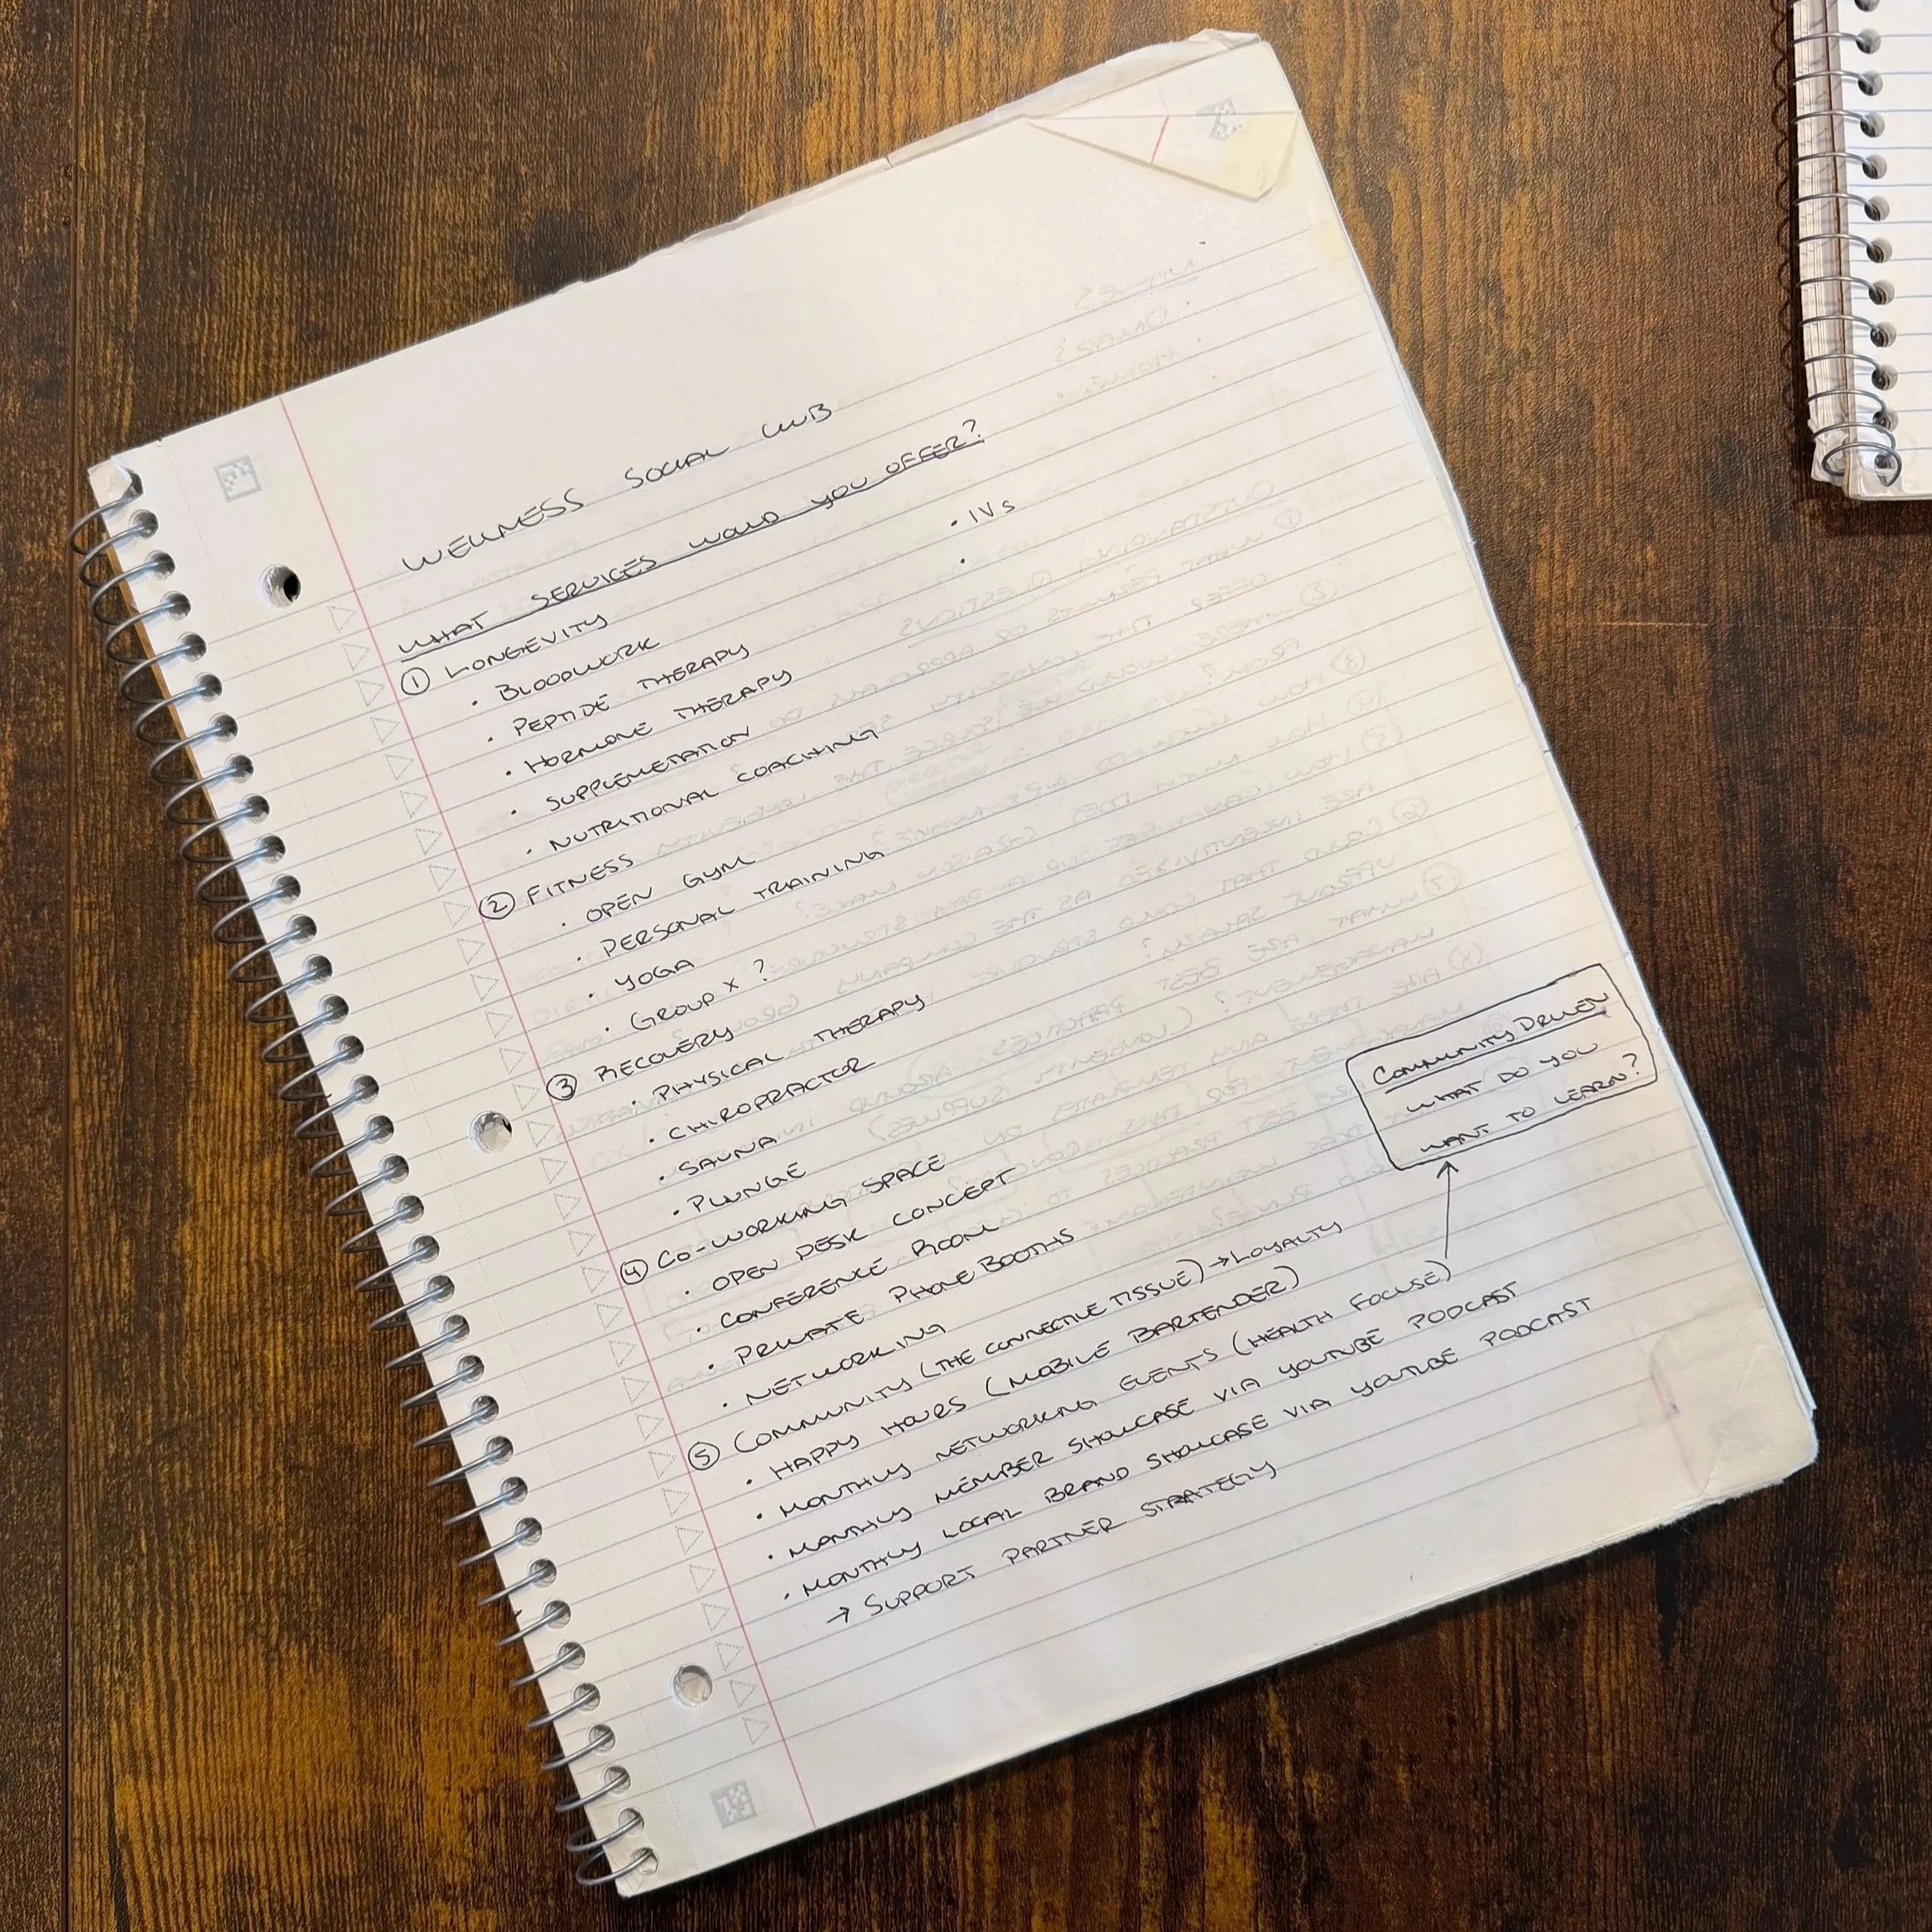 WELLNESS SOCIAL CLUB
WHAT SERVICES WOULD YOU OFFER?
① LONGEVITY
• BLOODWORK
• PEPTIDE THERAPY
• HORMONE THERAPY
• SUPPLEMETATION
• NUTRITIONAL COACHING
• IVs
•
② FITNESS
• OPEN GYM
• PERSONAL TRAINING
• YOGA
• GROUP X ?
③ RECOVERY
• PHYSICAL THERAPY
• CHIROPRACTOR
• SAUNA
• PLUNGE
④ CO-WORKING SPACE
• OPEN DESK CONCEPT
• CONFERENCE ROOM
• PRIVATE PHONE BOOTHS
• NETWORKING
⑤ COMMUNITY (THE CONNECTIVE TISSUE) → LOYALTY
• HAPPY HOURS (MOBILE BARTENDER)
• MONTHLY NETWORKING EVENTS (HEALTH FOCUSE)
• MONTHLY MEMBER SHOWCASE VIA YOUTUBE PODCAST
• MONTHLY LOCAL BRAND SHOWCASE VIA YOUTUBE PODCAST
→ SUPPORT PARTNER STRATEGY
COMMUNITY DRIVEN
WHAT DO YOU
WANT TO LEARN?